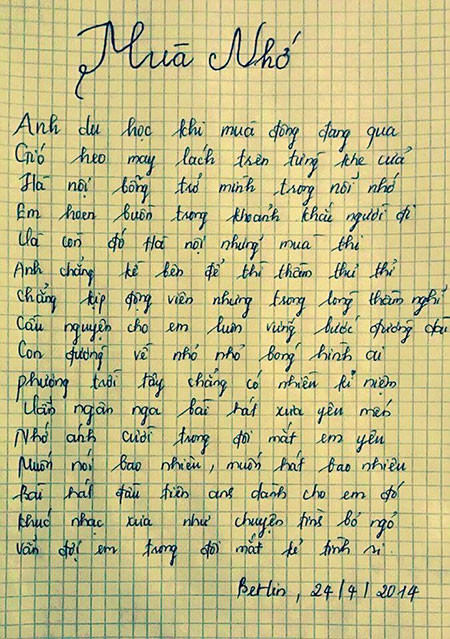 Mùa Nhớ
Anh du học khi mùa đông đang qua
Gió heo may lách trên từng khe cửa
Hà nội bỗng trở mình trong nỗi nhớ
Em hoen buồn trong khoảnh khắc người đi
Và còn đó Hà nội những mùa thi
Anh chẳng kề bên để thì thầm thủ thỉ
Chẳng kịp động viên nhưng trong lòng thầm nghĩ
Cầu nguyện cho em luôn vững bước đường dài
Con đường về nho nhỏ bóng hình ai
phương trời tây chẳng có nhiều kỉ niệm
Vẫn ngân nga bài hát xưa yêu mến
Nhớ ánh cười trong đôi mắt em yêu
Muốn nói bao nhiêu, muốn hát bao nhiêu
Bài hát đầu tiên anh dành cho em đó
khúc nhạc xưa như chuyện tình bỏ ngỏ
vẫn đợi em trong đôi mắt kẻ tình si.
Berlin, 24/4/2014